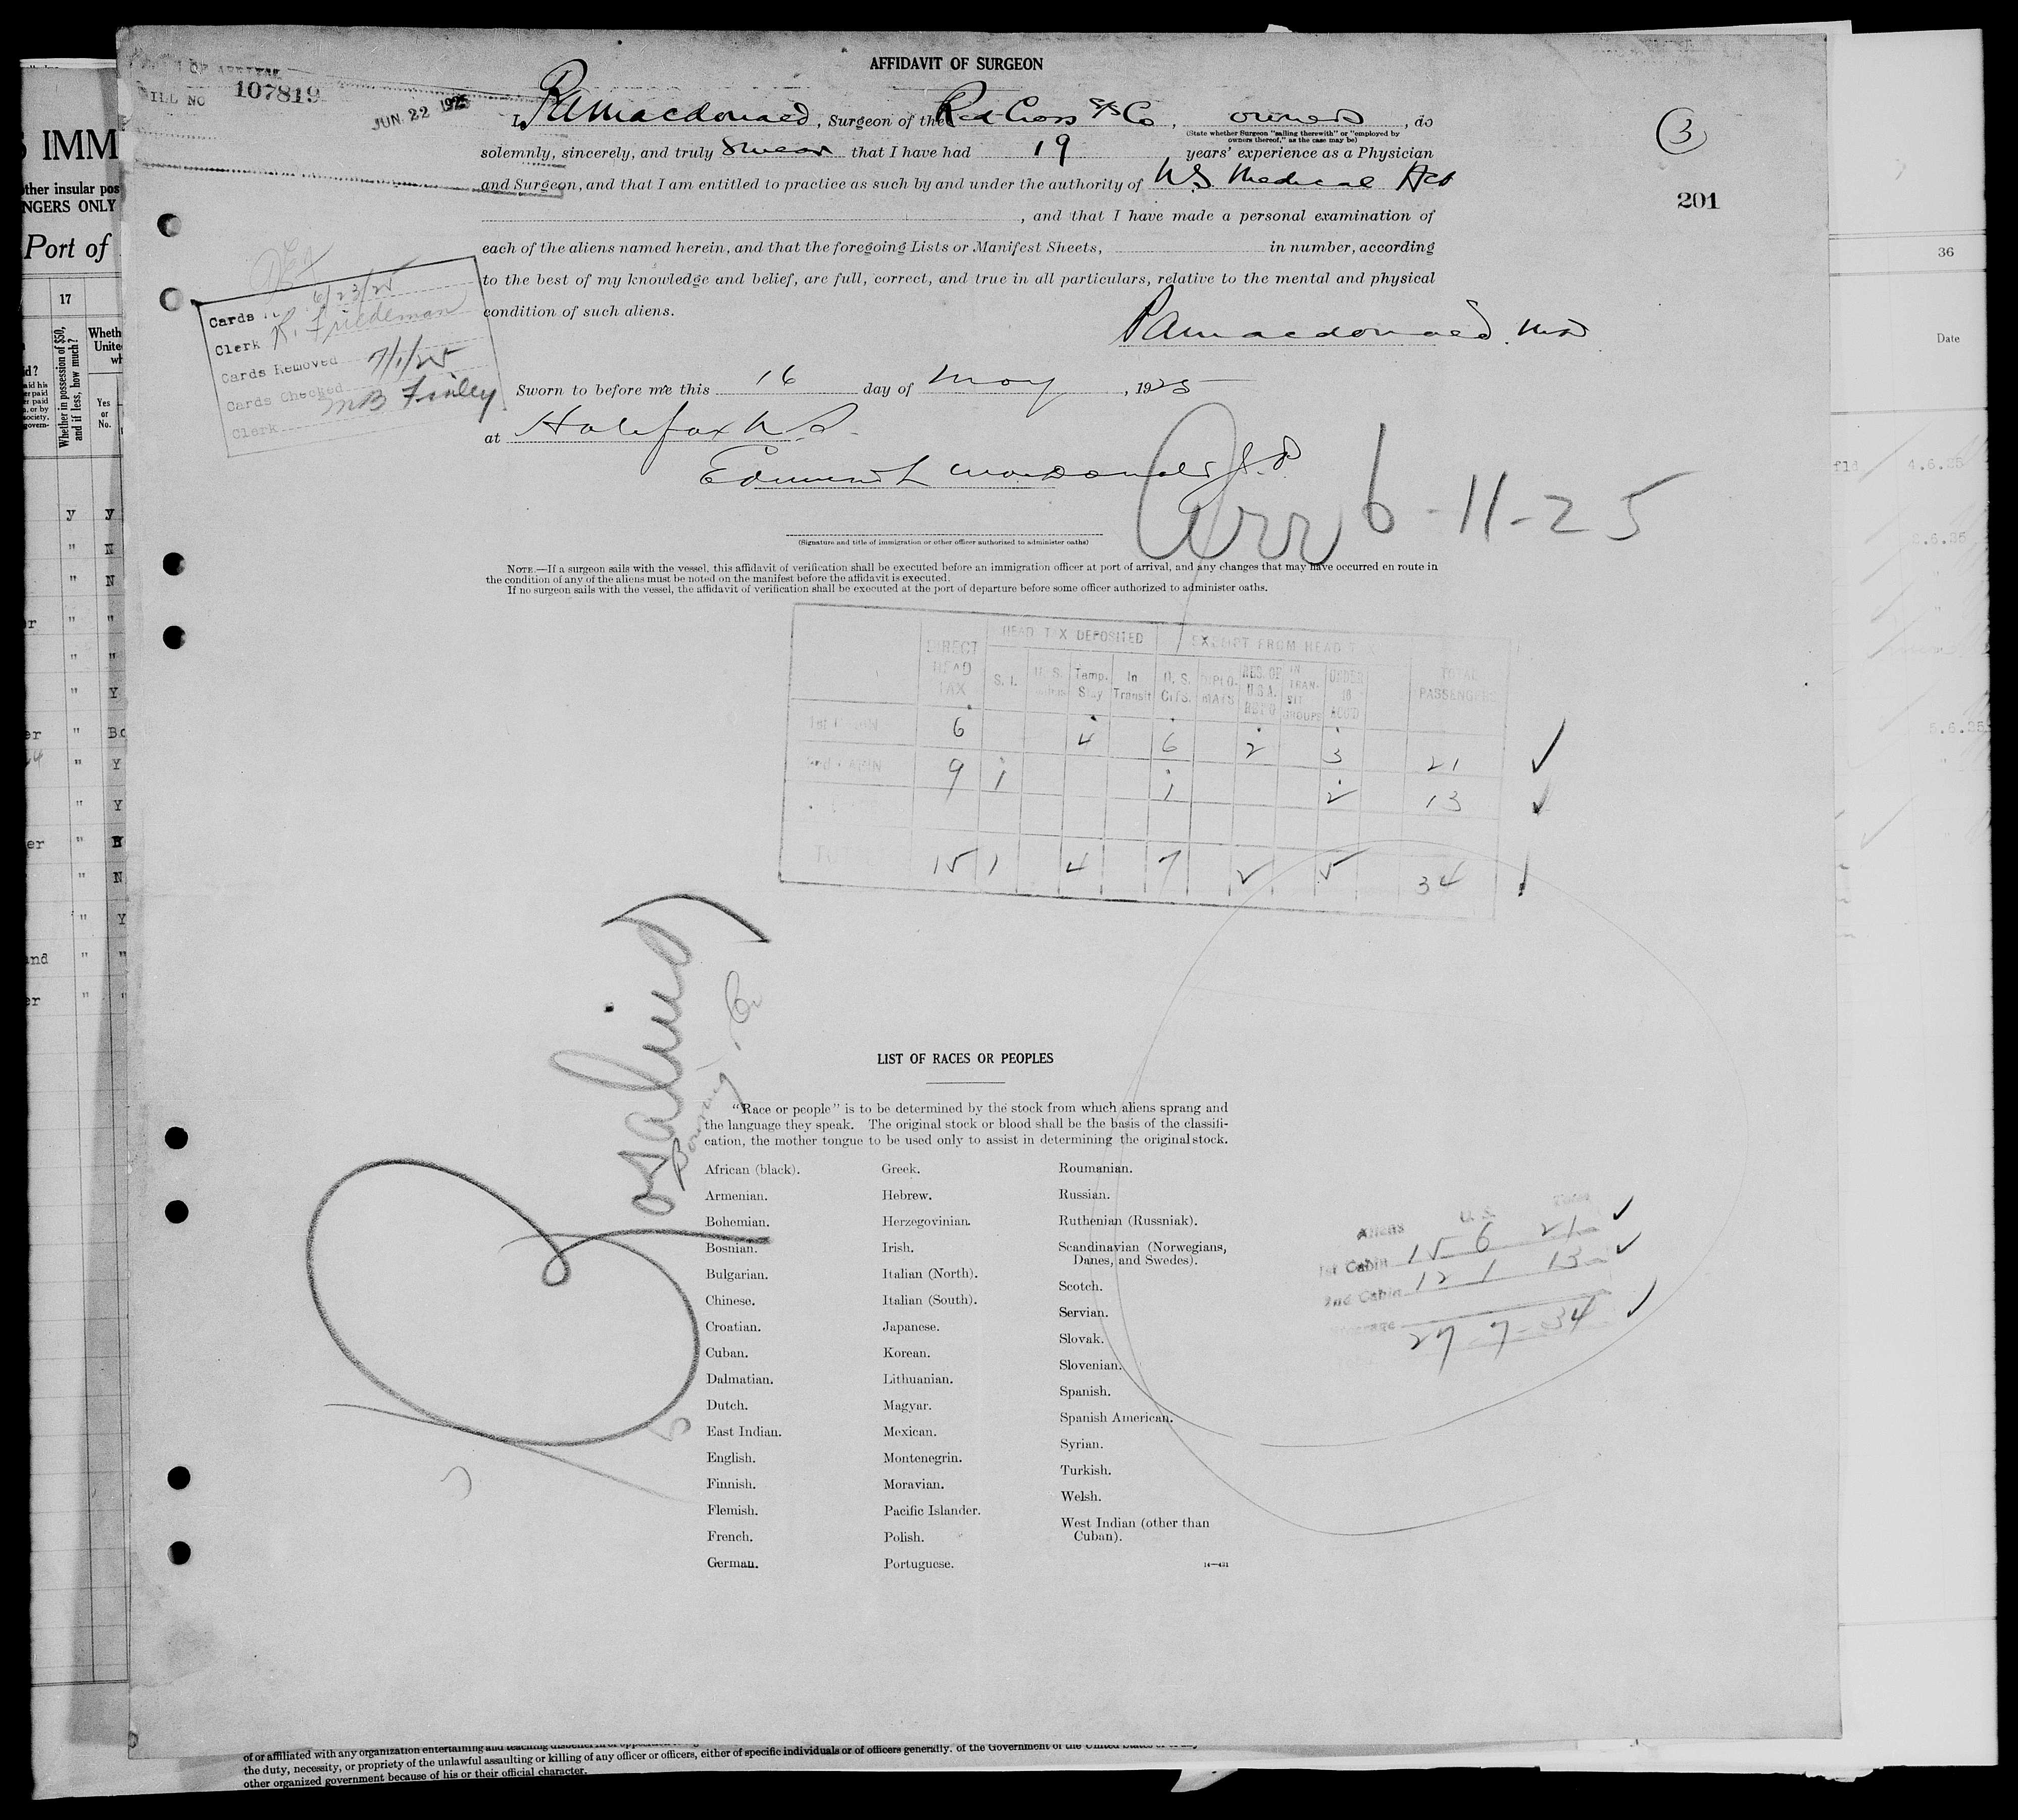 AFFIDAVIT OF SURGEON
BILL NO 107819
JUN 22 1925
I, P A Macdonald, Surgeon of the Red Cross S/S Co, owners, do
(State whether Surgeon "sailing therewith" or "employed by
owners thereof," as the case may be)
solemnly, sincerely, and truly swear that I have had 19 years' experience as a Physician
and Surgeon, and that I am entitled to practice as such by and under the authority of N.S. Medical Act
, and that I have made a personal examination of
each of the aliens named herein, and that the foregoing Lists or Manifest Sheets, in number, according
to the best of my knowledge and belief, are full, correct, and true in all particulars, relative to the mental and physical
condition of such aliens.
P A Macdonald M.D.
3
201
Cards 6/23/25
Clerk K. Friedeman
Cards Removed 7/1/25
Cards Checked
Clerk MB Finley
Sworn to before me this 16 day of May, 1925
at Halifax N.S.
Edmund L MacDonald J.P.
Arr 6-11-25
(Signature and title of immigration or other officer authorized to administer oaths)
NOTE.—If a surgeon sails with the vessel, this affidavit of verification shall be executed before an immigration officer at port of arrival, and any changes that may have occurred en route in
the condition of any of the aliens must be noted on the manifest before the affidavit is executed.
If no surgeon sails with the vessel, the affidavit of verification shall be executed at the port of departure before some officer authorized to administer oaths.
DIRECT HEAD TAX HEAD TAX DEPOSITED EXEMPT FROM HEAD TAX TOTAL PASSENGERS
S. I. U. S. Temp. Stay In Transit U. S. CITS. DIPLOMATS RES. OF U.S.A. IN TRANSIT GROUPS UNDER 16
1st CABIN 6 4 6 2 3 21
2nd CABIN 9 1 1 2 13
TOTAL 15 1 4 7 2 5 34
Rosalind
Bowring & Co
LIST OF RACES OR PEOPLES
"Race or people" is to be determined by the stock from which aliens sprang and
the language they speak. The original stock or blood shall be the basis of the classifi-
cation, the mother tongue to be used only to assist in determining the original stock.
African (black).
Armenian.
Bohemian.
Bosnian.
Bulgarian.
Chinese.
Croatian.
Cuban.
Dalmatian.
Dutch.
East Indian.
English.
Finnish.
Flemish.
French.
German.
Greek.
Hebrew.
Herzegovinian.
Irish.
Italian (North).
Italian (South).
Japanese.
Korean.
Lithuanian.
Magyar.
Mexican.
Montenegrin.
Moravian.
Pacific Islander.
Polish.
Portuguese.
Roumanian.
Russian.
Ruthenian (Russniak).
Scandinavian (Norwegians,
Danes, and Swedes).
Scotch.
Servian.
Slovak.
Slovenian.
Spanish.
Spanish American.
Syrian.
Turkish.
Welsh.
West Indian (other than
Cuban).
14—431
Aliens U. S. Total
1st Cabin 15 6 21
2nd Cabin 12 1 13
Steerage
27 7 34
IMM
other insular pos
NGERS ONLY
Port of
17
Whether in possession of $50,
and if less, how much?
Yes
or
No.
36
Date
4.6.25
5.6.25
the duty, necessity, or propriety of the unlawful assaulting or killing of any officer or officers, either of specific individuals or of officers generally, of the Government of the United States
other organized government because of his or their official character.